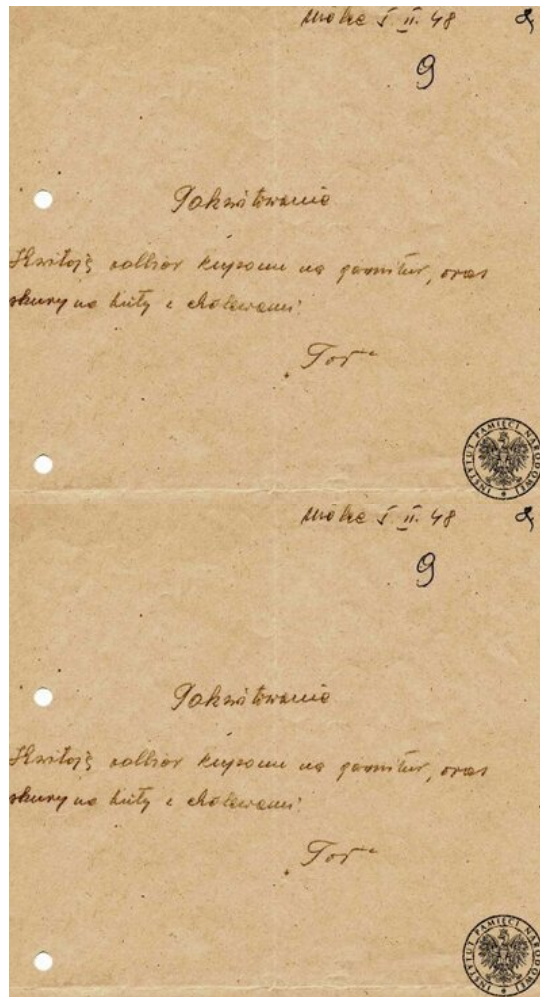 II. 48
9
Pokwitowanie
Kwituję odbiór kuponu na garnitur, oraz
skury na buty z cholewami.
INSTYTUT PAMIĘCI NARODOWEJ
II. 48
9
Pokwitowanie
Kwituję odbiór kuponu na garnitur, oraz
skury na buty z cholewami.
INSTYTUT PAMIĘCI NARODOWEJ